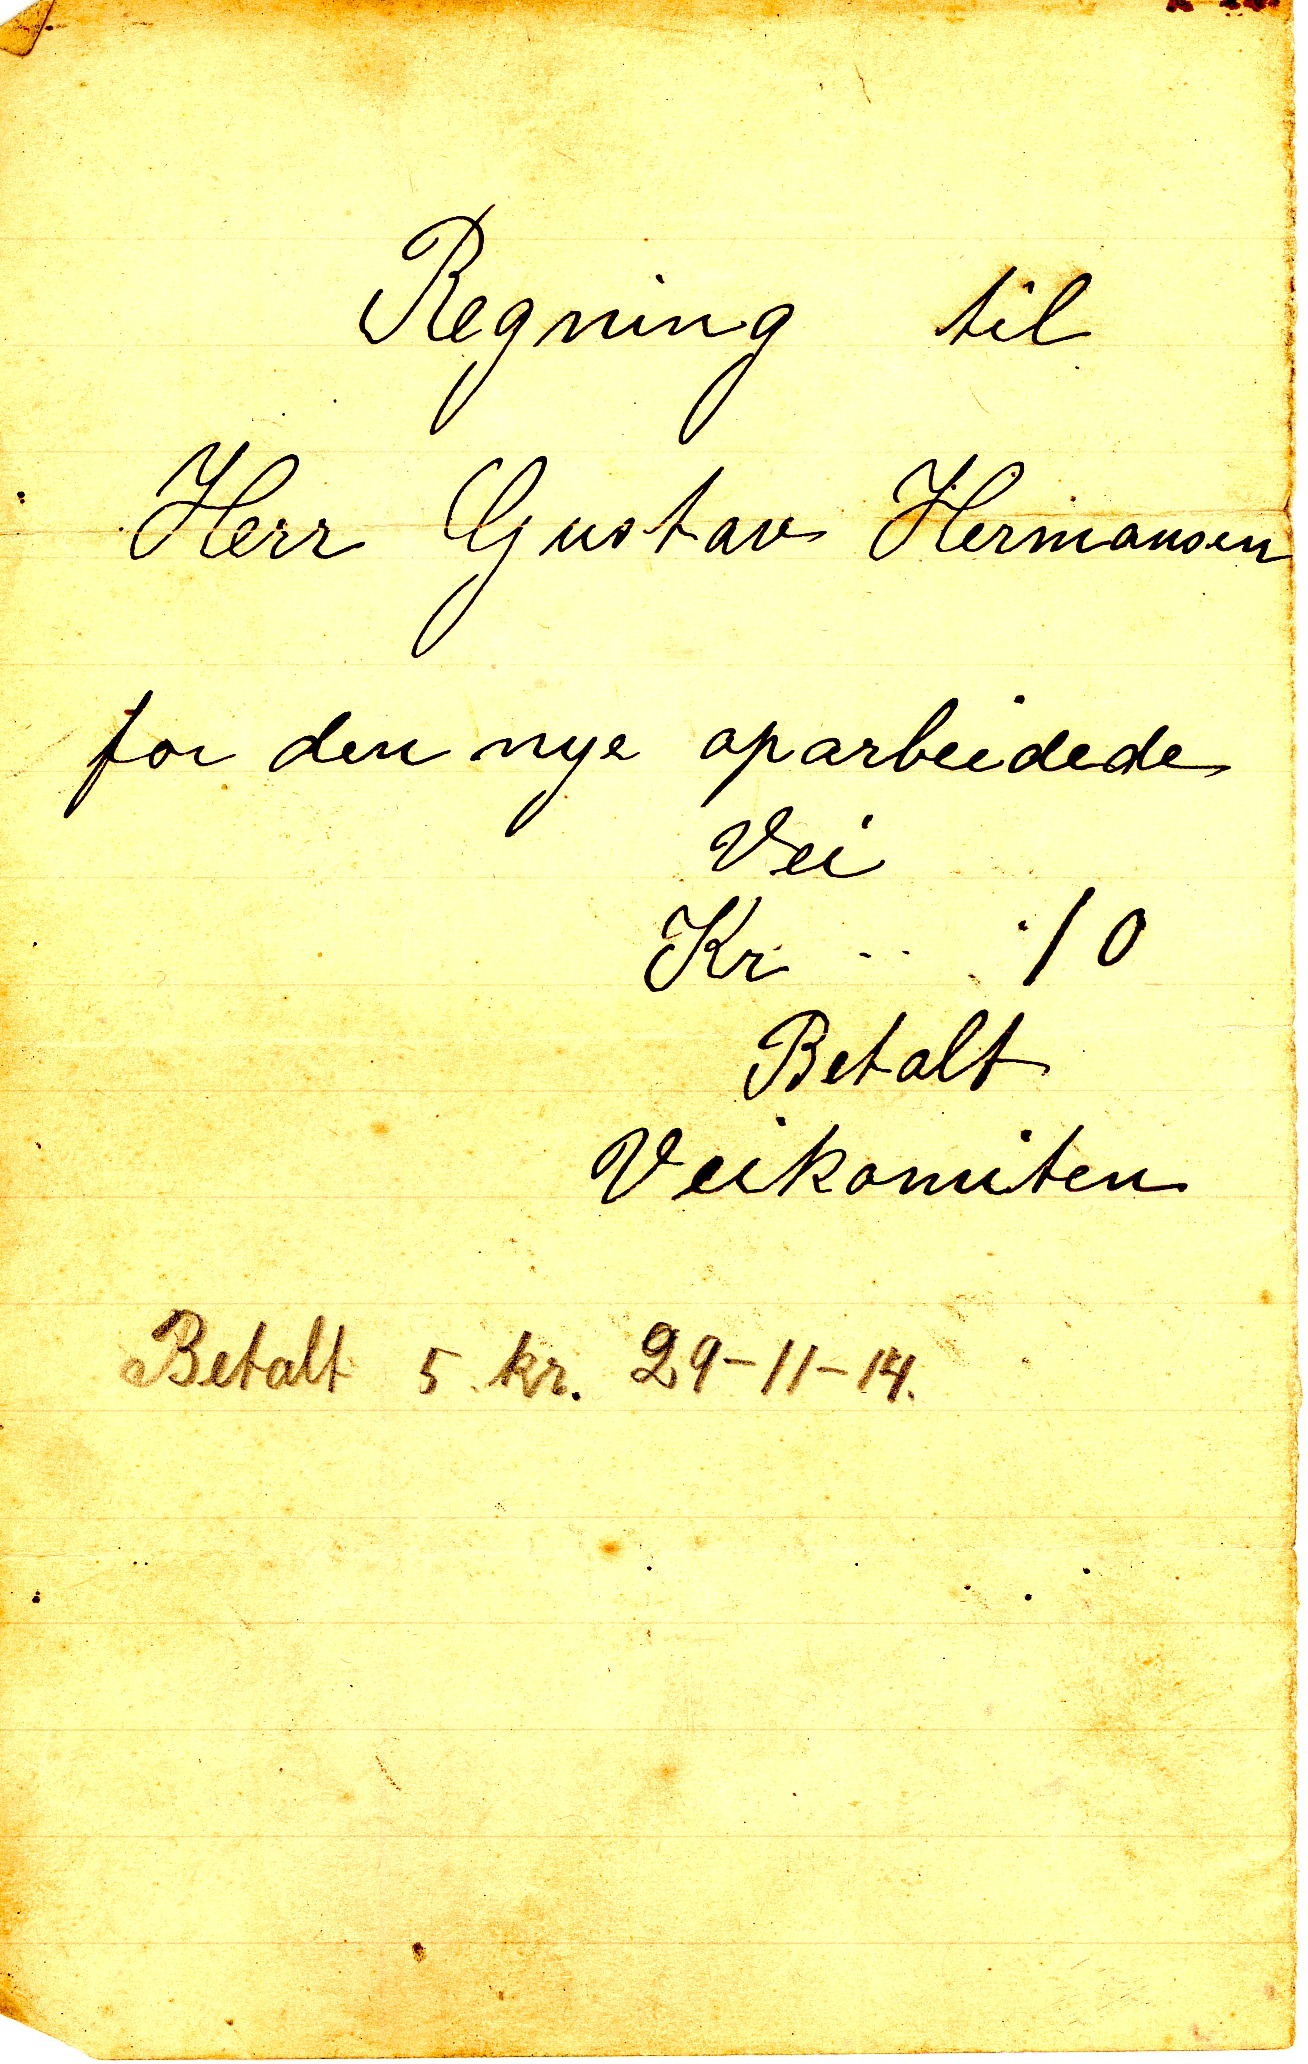 Regning til
Herr Gustav Hermansen
for den nye oparbeidede
Vei
Kr. .. 10
Betalt
Veikomiten
Betalt 5 kr. 29-11-14.